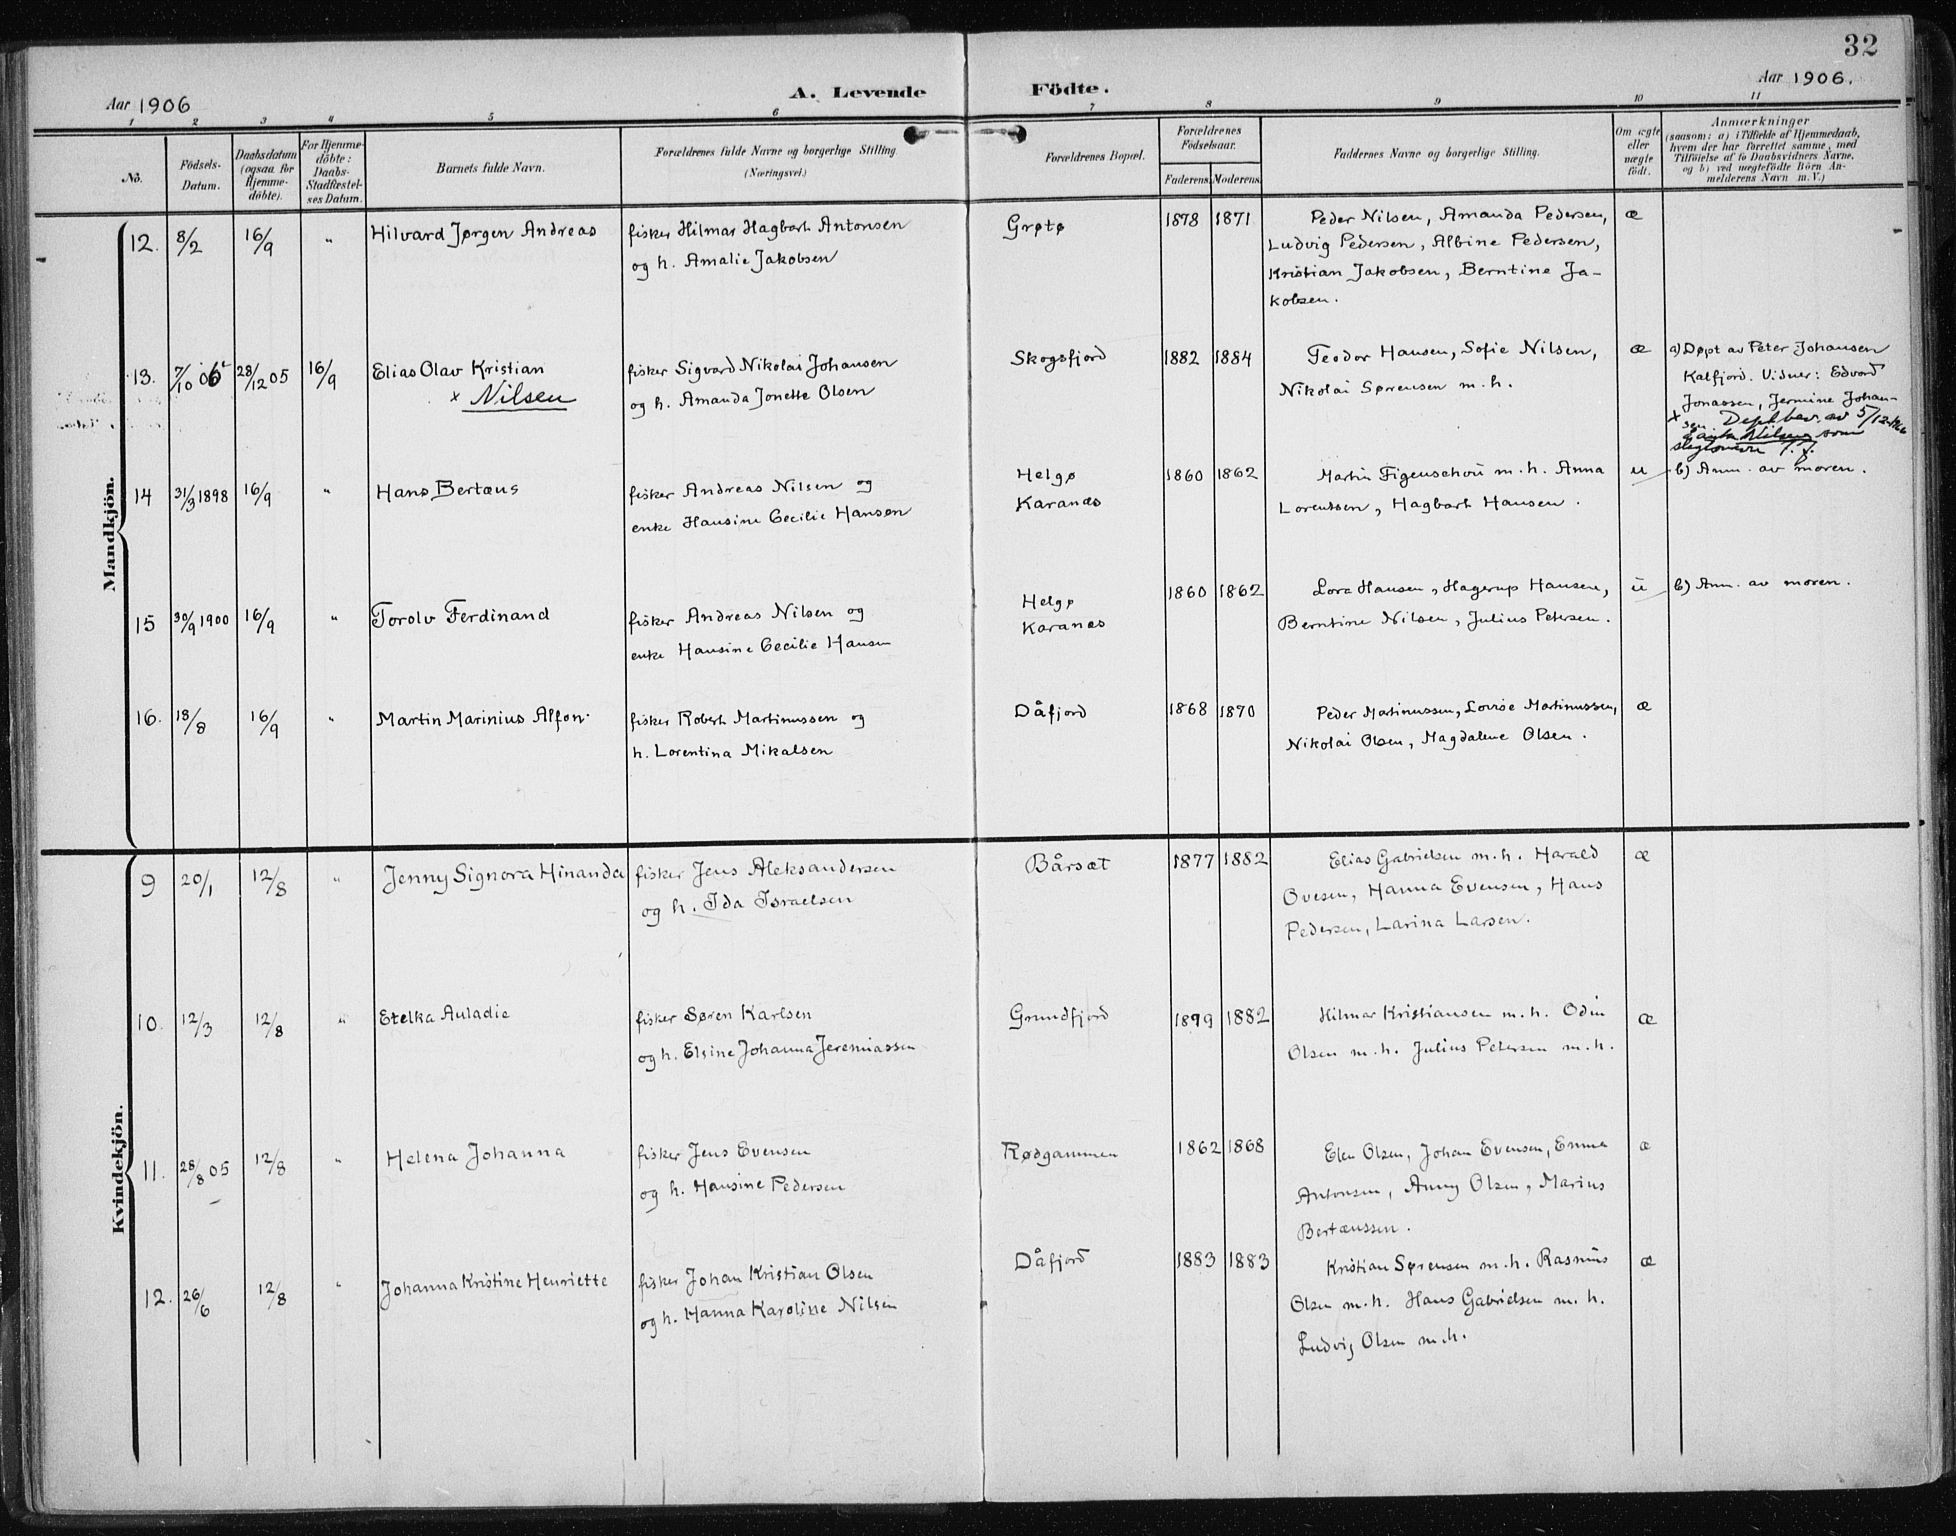 32
Aar 1906
A. Levende Födte.
Aar 1906.
1 2 3 4 5 6 7 8 9 10 11
No.
Födsels-
Datum.
Daabsdatum
(ogsaa for
Hjemme-
döbte).
For Hjemme-
döbte:
Daabs-
Stadfæstel-
ses Datum.
Barnets fulde Navn.
Forældrenes fulde Navne og borgerlige Stilling
(Næringsvei.)
Forældrenes Bopæl.
Forældrenes
Födselsaar.
Faderens. Moderens.
Faddernes Navne og borgerlige Stilling.
Om ægte
eller
uægte
födt.
Anmærkninger
(saasom: a) i Tilfælde af Hjemmedaab,
hvem der har forrettet samme, med
Tilföielse af to Daabsvidners Navne,
og b) ved uægtefödte Börn An-
melderens Navn m. V.)
Mandkjön.
12. 8/2 16/9 " Hilvard Jørgen Andreas fisker Hilmar Hagbart Antonsen Grøtø 1878 1871 Peder Nilsen, Amanda Pedersen, æ
og h. Amalie Jakobsen Ludvig Pedersen, Albine Pedersen,
Kristian Jakobsen, Berntine Ja-
kobsen.
13. 7/10 05 28/12 05 16/9 Elias Olav Kristian fisker Sigvard Nikolai Johansen Skogsfjord 1882 1884 Teodor Hansen, Sofie Nilsen, æ a) Døpt av Peter Johansen
x Nilsen og h. Amanda Jonette Olsen Nikolai Sørensen m. h. Kalfjord. Vidner: Edvard
Jonassen, Jermine Johan-
sen
x Dept. bev. av 5/12
Nilsen som
slegtsnavn
14 31/3 1898 16/9 " Hans Bertæus fisker Andreas Nilsen og Helgø 1860 1862 Martin Figenschou m. h. Anna u b) Anm. av moren.
enke Hansine Cecilie Hansen Karanæs Lorentsen, Hagbart Hansen.
15 30/9 1900 16/9 " Torolv Ferdinand fisker Andreas Nilsen og Helgø 1860 1862 Lora Hansen, Hagerup Hansen, u b) Anm. av moren.
enke Hansine Cecilie Hansen Karanæs Berntine Nilsen, Julius Petersen.
16. 18/8 16/9 " Martin Marinius Alfon. fisker Robert Martinussen og Dåfjord 1868 1870 Peder Martinussen, Lovise Martinussen, æ
h. Lorentina Mikalsen Nikolai Olsen, Magdalene Olsen.
Kvindekjön.
9 20/1 12/8 " Jenny Signora Hinanda fisker Jens Aleksandersen Bårsæt 1877 1882 Elias Gabrielsen m. h. Harald æ
og h. Ida Israelsen Ovesen, Hanna Evensen, Hans
Pedersen, Larina Larsen.
10. 12/3 12/8 " Etelka Auladie fisker Søren Karlsen Grundfjord 1879 1882 Hilmar Kristiansen m. h. Odin æ
og h. Elsine Johanna Jeremiassen Olsen m. h. Julius Petersen m. h.
11. 28/8 05 12/8 " Helena Johanna fisker Jens Evensen Rødgammen 1862 1868 Elen Olsen, Johan Evensen, Emma æ
og h. Hansine Pedersen Antonsen, Anny Olsen, Marius
Bertæussen.
12. 26/6 12/8 " Johanna Kristine Henriette fisker Johan Kristian Olsen Dåfjord 1883 1883 Kristian Sørensen m. h. Rasmus æ
og h. Hanna Karoline Nilsen Olsen m. h. Hans Gabrielsen m. h.
Ludvig Olsen m. h.